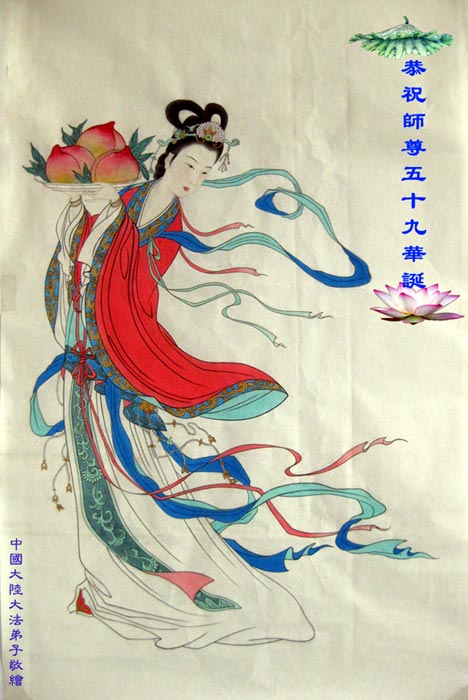 恭祝師尊五十九華誕
中國大陸大法弟子敬繪